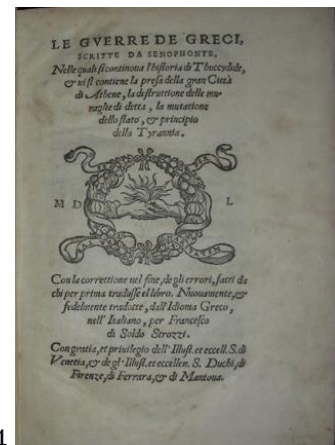 LE GVERRE DE GRECI,
SCRITTE DA SENOPHONTE,
Nelle quali si continoua l'historia di Thuccydide,
& ui si contiene la presa della gran Città
di Athene, la distruttione delle mu-
raglie di detta, la mutatione
dello stato, & principio
della Tyrannia.
M D L
Con la correttione nel fine, de gli errori, fatti da
chi per prima tradusse el libro. Nuouamente, &
fedelmente tradotte, dall'Idioma Greco,
nell'Italiano, per Francesco
di Soldo Strozzi.
Con gratia, et priuilegio dell'Illust. et eccell. S. di
Venetia, & de gl'Illust. et eccellen. S. Duchi, di
Firenze, di Ferrara, & di Mantoua.
1